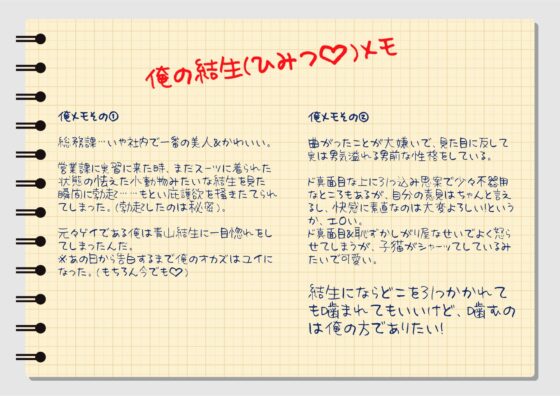 俺の結生(ひみつ♡)メモ
俺メモその①
総務課…いや社内で一番の美人&かわいい。
営業課に実習に来た時、まだスーツに着られた
状態の怯えた小動物みたいな結生を見た
瞬間に勃起……もとい庇護欲を掻きたてられ
てしまった。(勃起したのは秘密)。
元々ゲイである俺は青山結生に一目惚れをし
てしまったんだ。
※あの日から告白するまで俺のオカズはユイに
なった。(もちろん今でも♡)
俺メモその②
曲がったことが大嫌いで、見た目に反して
実は男気溢れる男前な性格をしている。
ド真面目な上に引っ込み思案で少々不器用
なところもあるが、自分の意見はちゃんと言え
るし、快感に素直なのは大変よろしいという
か、エロい。
ド真面目&恥ずかしがり屋なせいでよく怒ら
せてしまうが、子猫がシャーッてしているみ
たいで可愛い。
結生にならどこを引っかかれて
も噛まれてもいいけど、噛むの
は俺の方でありたい!